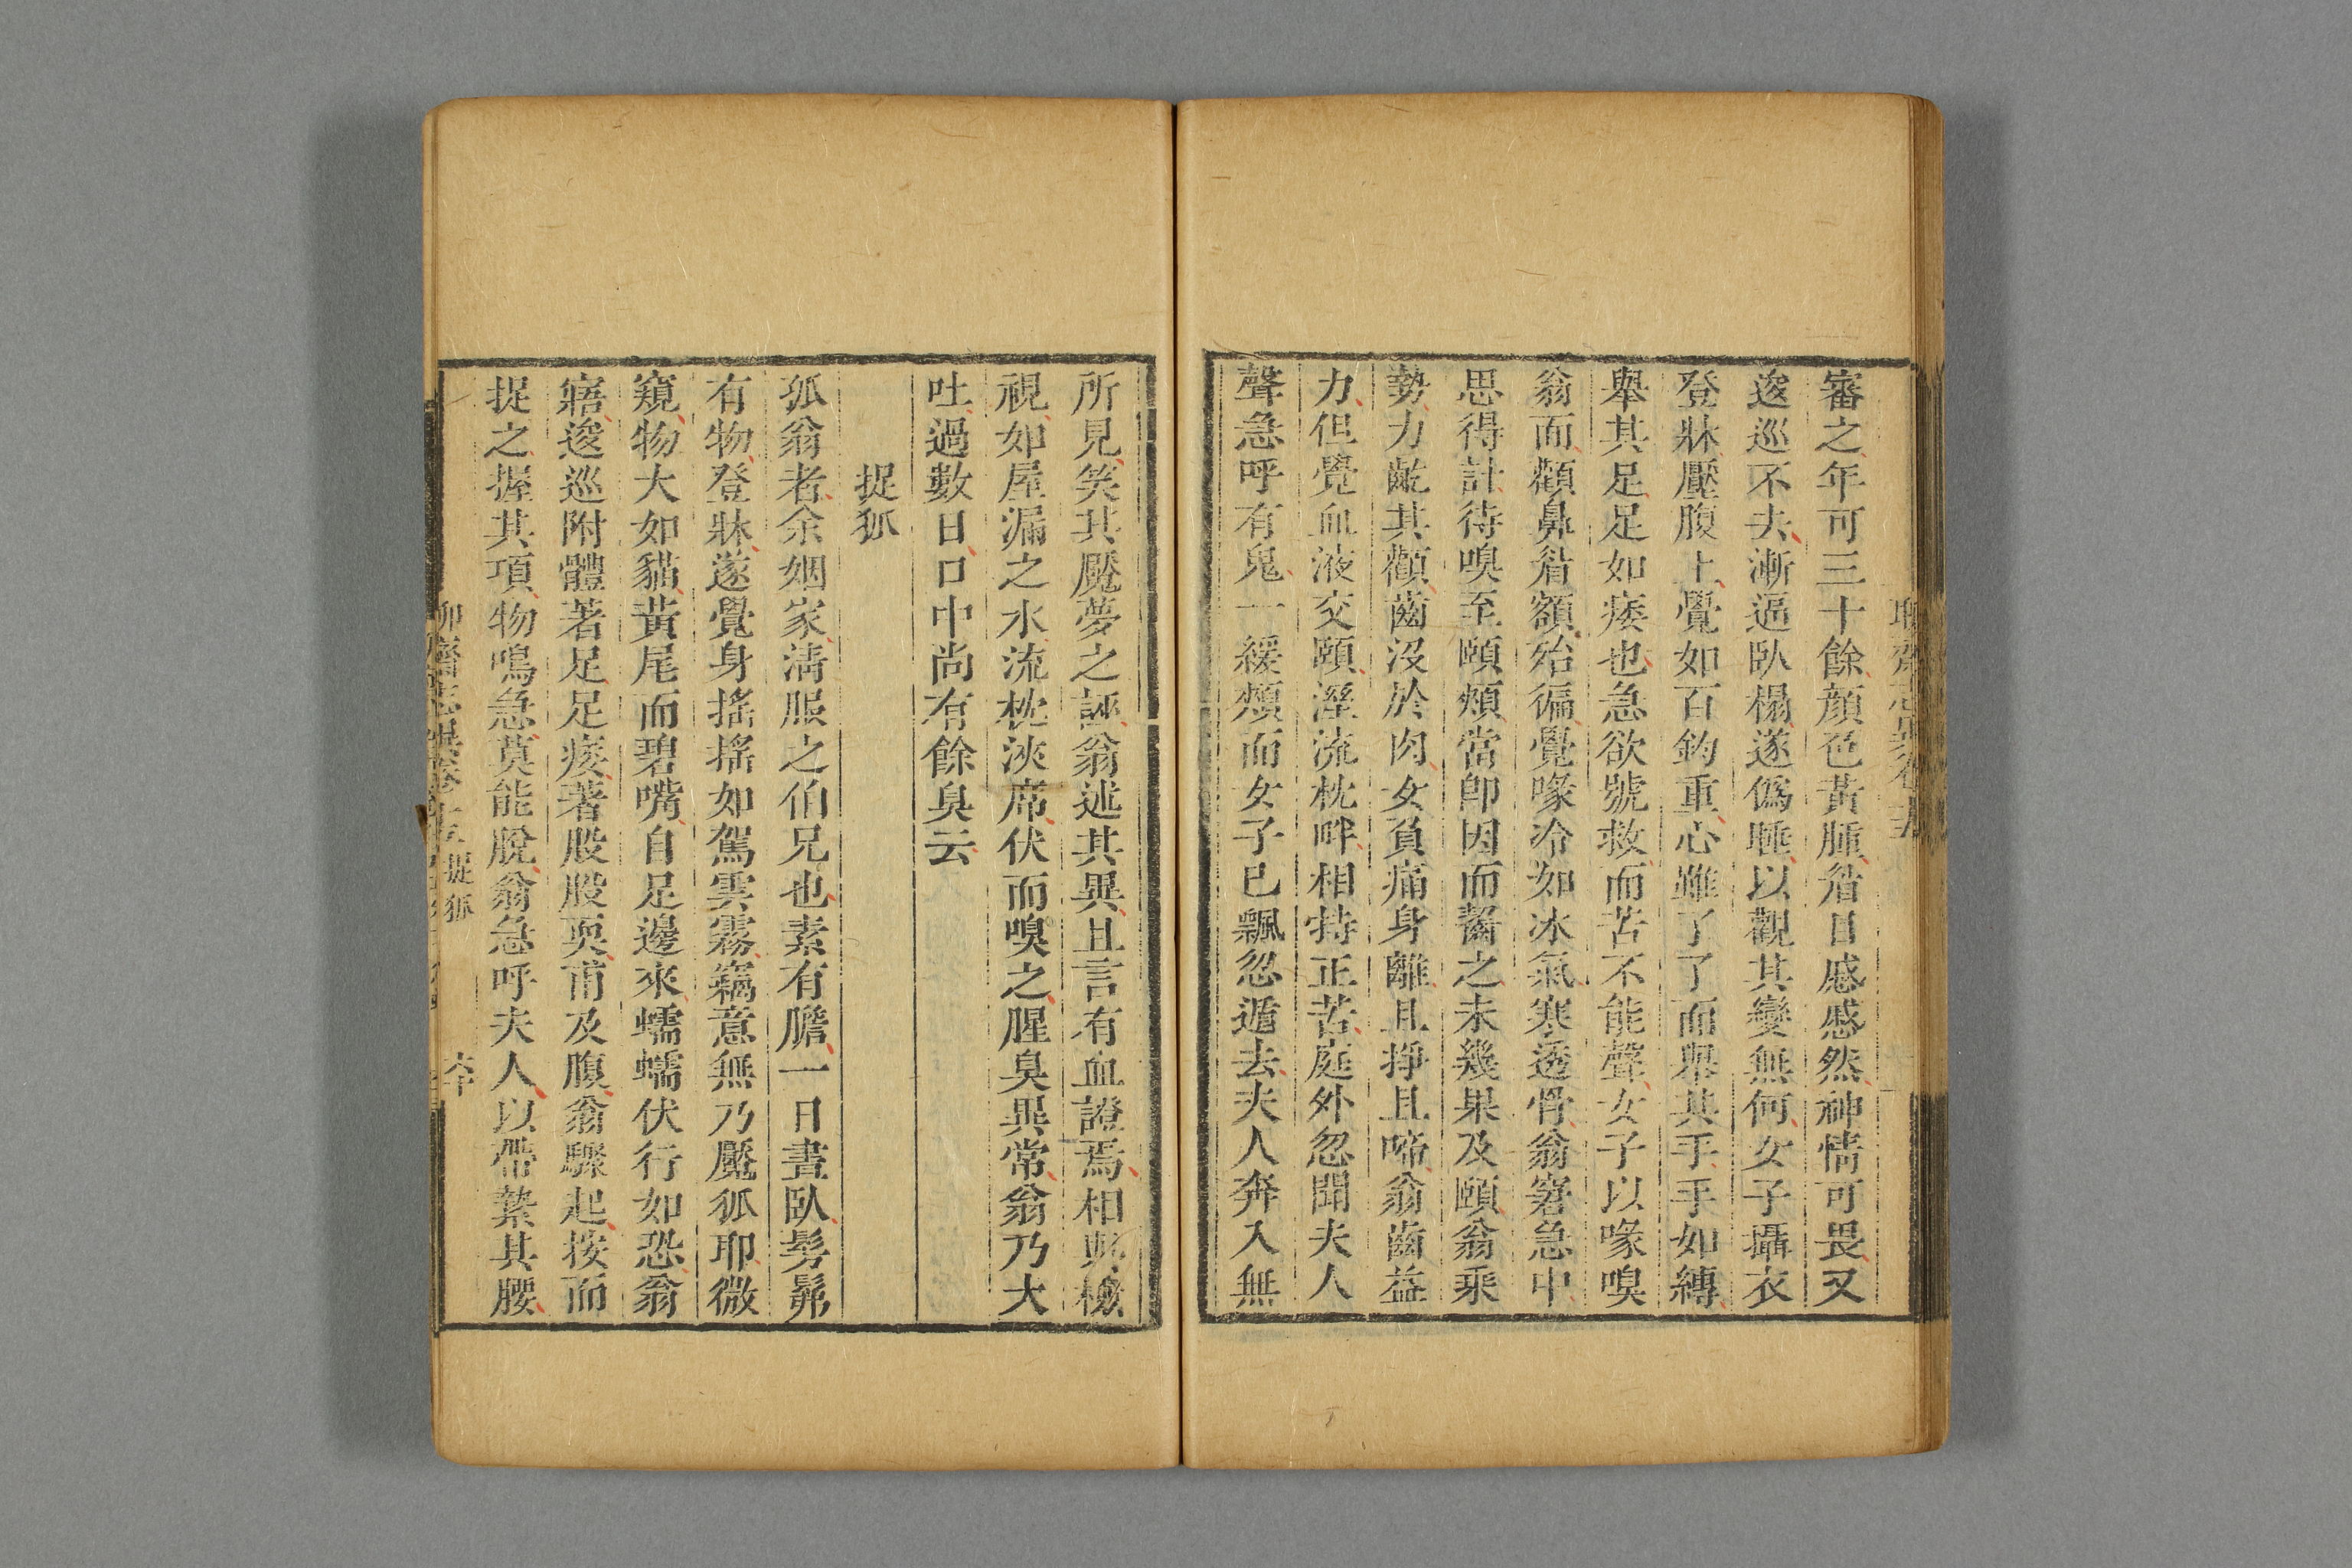 審之年可三十餘顏色黃腫眉目慼慼然神情可畏又
逡巡不去漸逼臥榻遂偽睡以觀其變無何女子攝衣
登牀壓腹上覺如百鈞重心雖了了而舉其手手如縛
舉其足足如痿也急欲號救而苦不能聲女子以喙嗅
翁面顴鼻眉額殆徧覺喙冷如冰氣寒透骨翁窘急中
思得計待嗅至頤頰當卽因而齧之未幾果及頤翁乘
勢力齕其顴齒沒於肉女負痛身離且掙且啼翁齒益
力但覺血液交頤溼流枕畔相持正苦庭外忽聞夫人
聲急呼有鬼一緩頰而女子已飄忽遁去夫人奔入無
所見笑其魘夢之誣翁述其異且言有血證焉相與檢
視如屋漏之水流枕浹席伏而嗅之腥臭異常翁乃大
吐過數日口中尚有餘臭云
捉狐
狐翁者余姻家淸服之伯兄也素有膽一日晝臥髣髴
有物登牀遂覺身搖搖如駕雲霧竊意無乃魘狐耶微
窺物大如貓黃尾而碧嘴自足邊來蠕蠕伏行如恐翁
寤逡巡附體著足足痿著股股耎甫及腹翁驟起按而
捉之握其項物鳴急莫能脫翁急呼夫人以帶縶其腰
捉狐